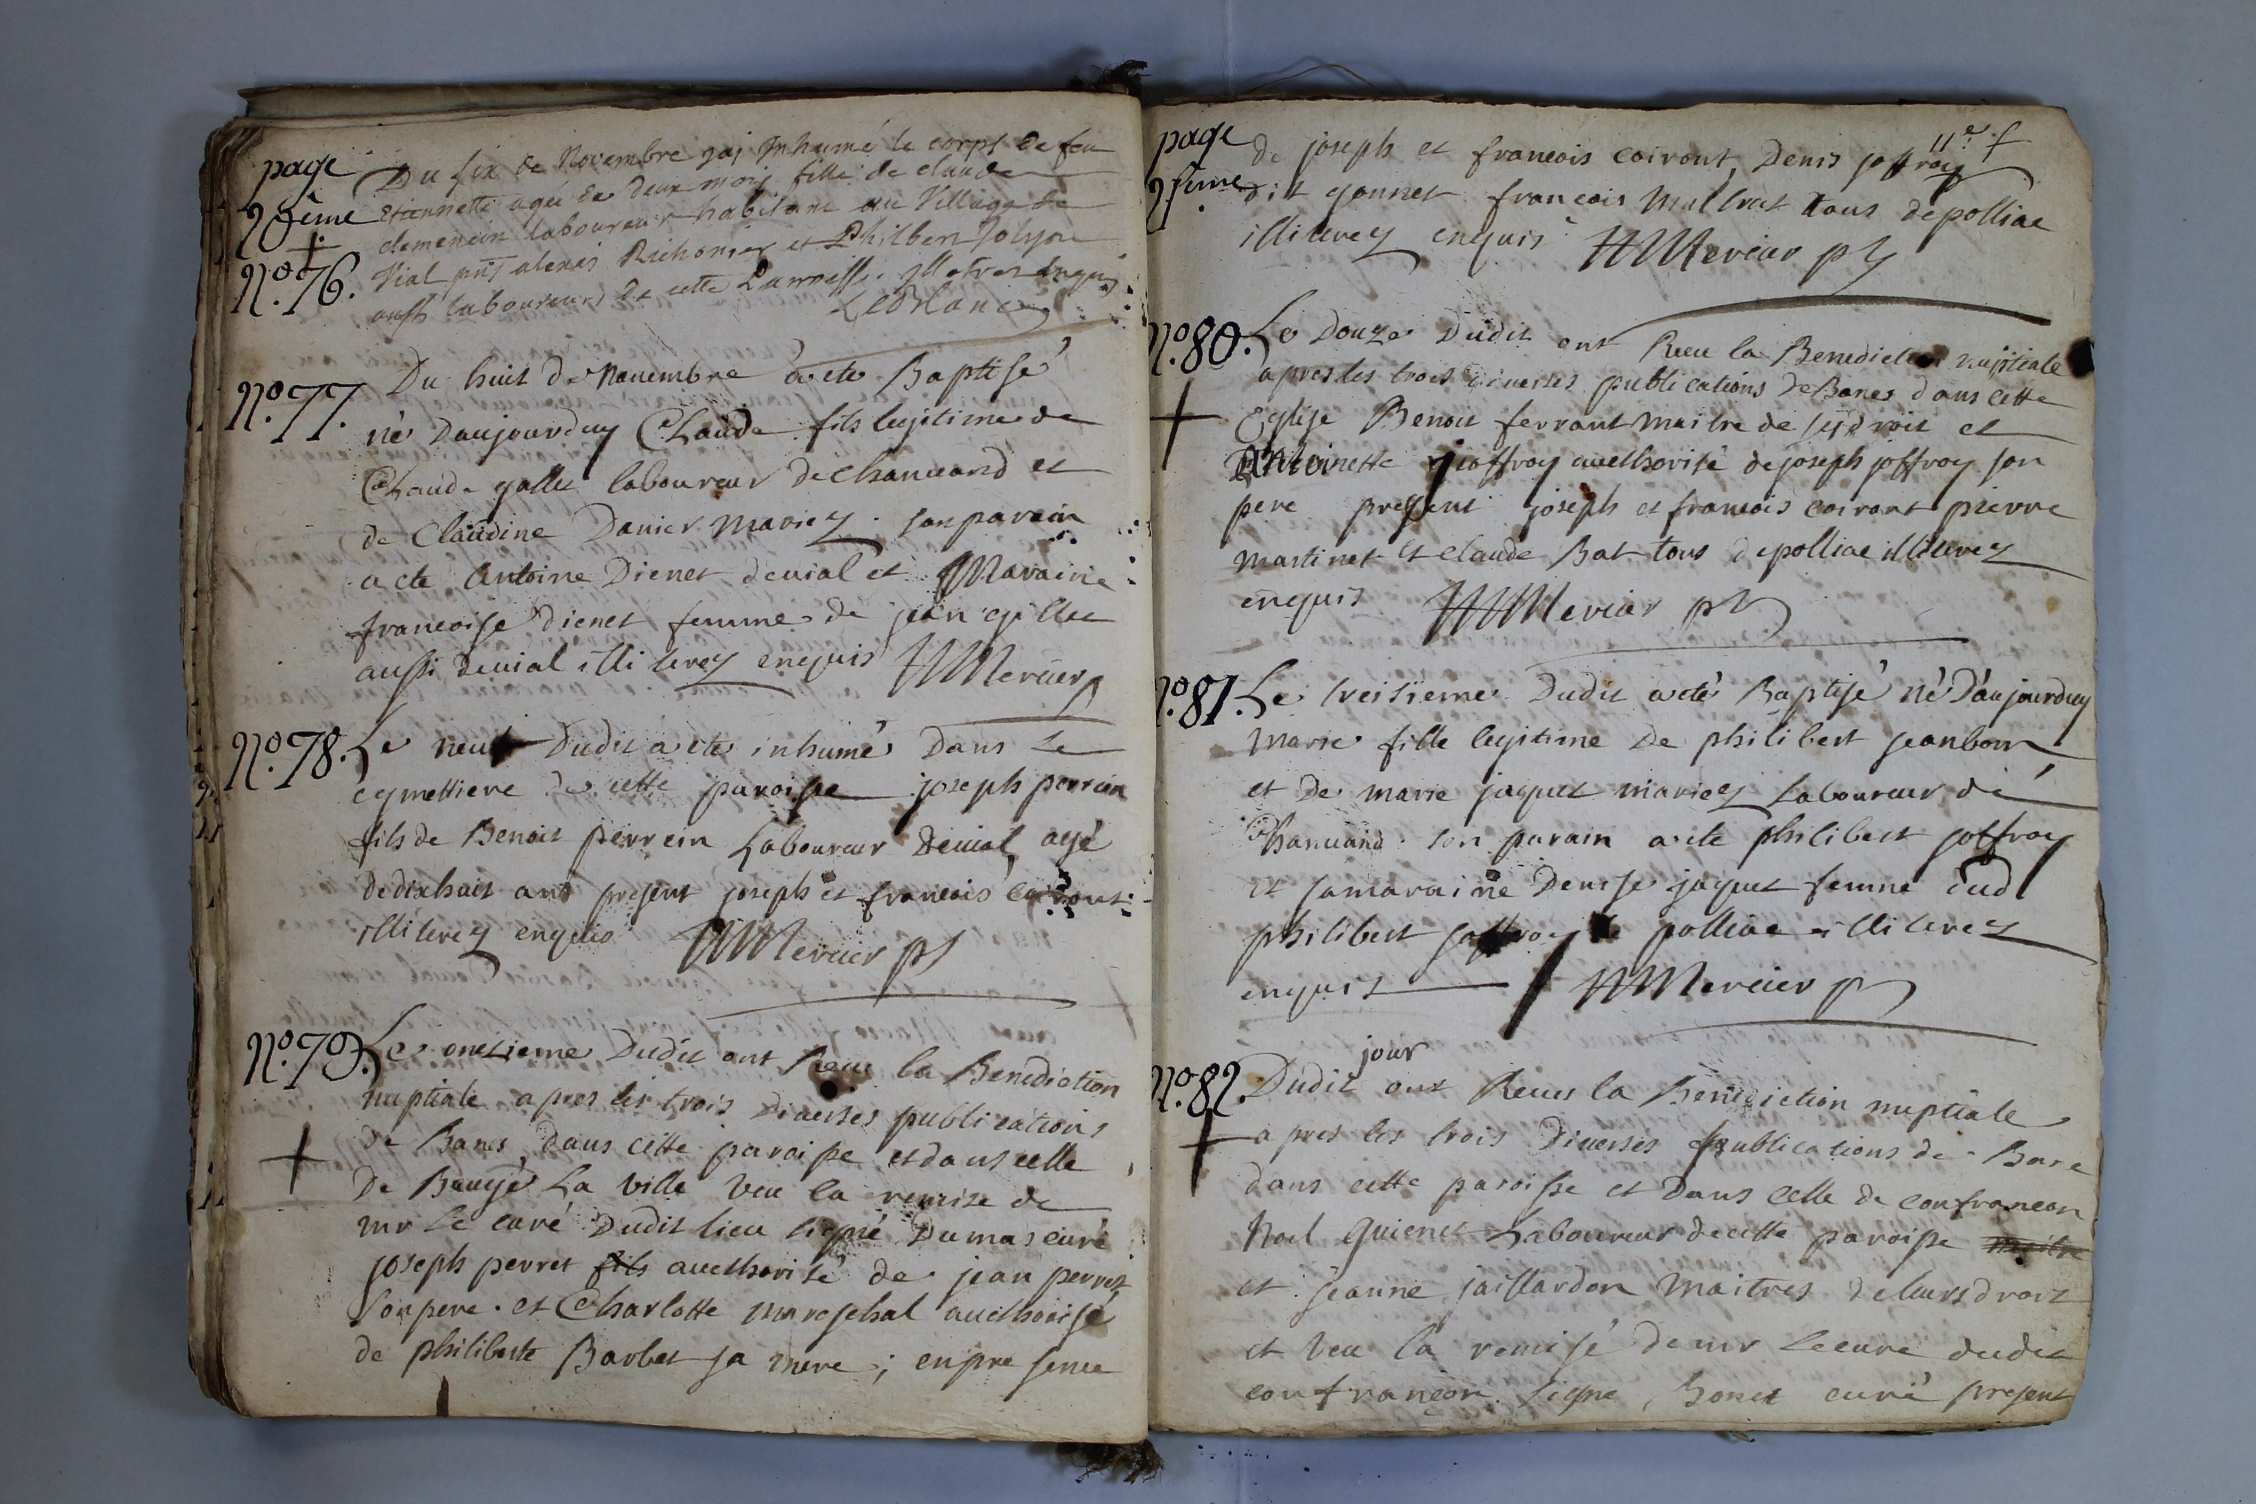 page
20ême
Nº.76.
Du six de Novembre jaj Inhumé le corps de feu
Etiennette agée de deux mois fille de claude
clemencin laboureur habitant au Village de
Vial pnt alexis Richonier et Philbert Jolyon
aussi laboureurs de cette Parroisse illetres enquis
LeBlanc
Nº.77.
Du huit de Novembre a ete Baptisé
né Daujourduy Claude fils legitime de
Claude gallet laboureur de Chanuand et
de Claudine Danier mariez. son parain
a ete Antoine Dienet deuial et Maraine
francoise dienet femme de jean gillet
aussi deuial illiterez enquis Mercier p
Nº.78.
Le neuf Dudit a ete inhumé Dans Le
cymettiere de cette paroisse joseph perrein
fils de Benoit perrein Laboureur Deuial agé
de dixhuit ans present joseph et francois coiront
illiterez enquis Mercier p
Nº.79.
Le onzieme Dudit ont Receu la Benediction
nuptiale apres les trois Diuerses publications
de Bancs dans cette paroisse et dans celle
De Baugé La Ville Veu la remise de
mr Le curé Dudit lieu signé Dumas curé
joseph perret fils aucthorisé de jean perret
Son pere. et Charlotte mareschal aucthorisé
de philiberte Barbet sa mere; en presence
page
21ême
11e. f
de joseph et francois coiront Denis joffroy
dit gonnet francois Maltrat tous depolliac
illiterez enquis Mercier p
Nº.80.
Le Douze Dudit ont Receu la Benediction nuptiale
apres les trois diuerses publications de Bancs dans cette
Eglise Benoit ferrant Maitre de ses droit et
Antoinette joffroy aucthorisé de joseph joffroy son
pere present joseph et francois coiront pierre
martinet et claude Bat tous depolliac illiterez
enquis Mercier p
Nº.81.
Le treisieme Dudit a eté Baptisé né Daujourduy
Marie fille legitime De philibert jeanbon
et De marie jaquet mariez Laboureur de
Chanuand. son parain a ete philibert joffroy
et sa maraine Denise jaquet femme dud
philibert joffroy de polliac illiterez
enquis Mercier p
Nº.82.
jour
Dudit ont Receu la Benediction nuptiale
apres les trois Diuerses publications de Banc
dans cette paroisse et Dans celle de confrancon
Noel Guienet Laboureur decette paroisse maitre
et jeanne jaillardon Maitres de leurs droit
et Veu la remise de mr Le curé dudit
confrançon signe, Bonet curé present